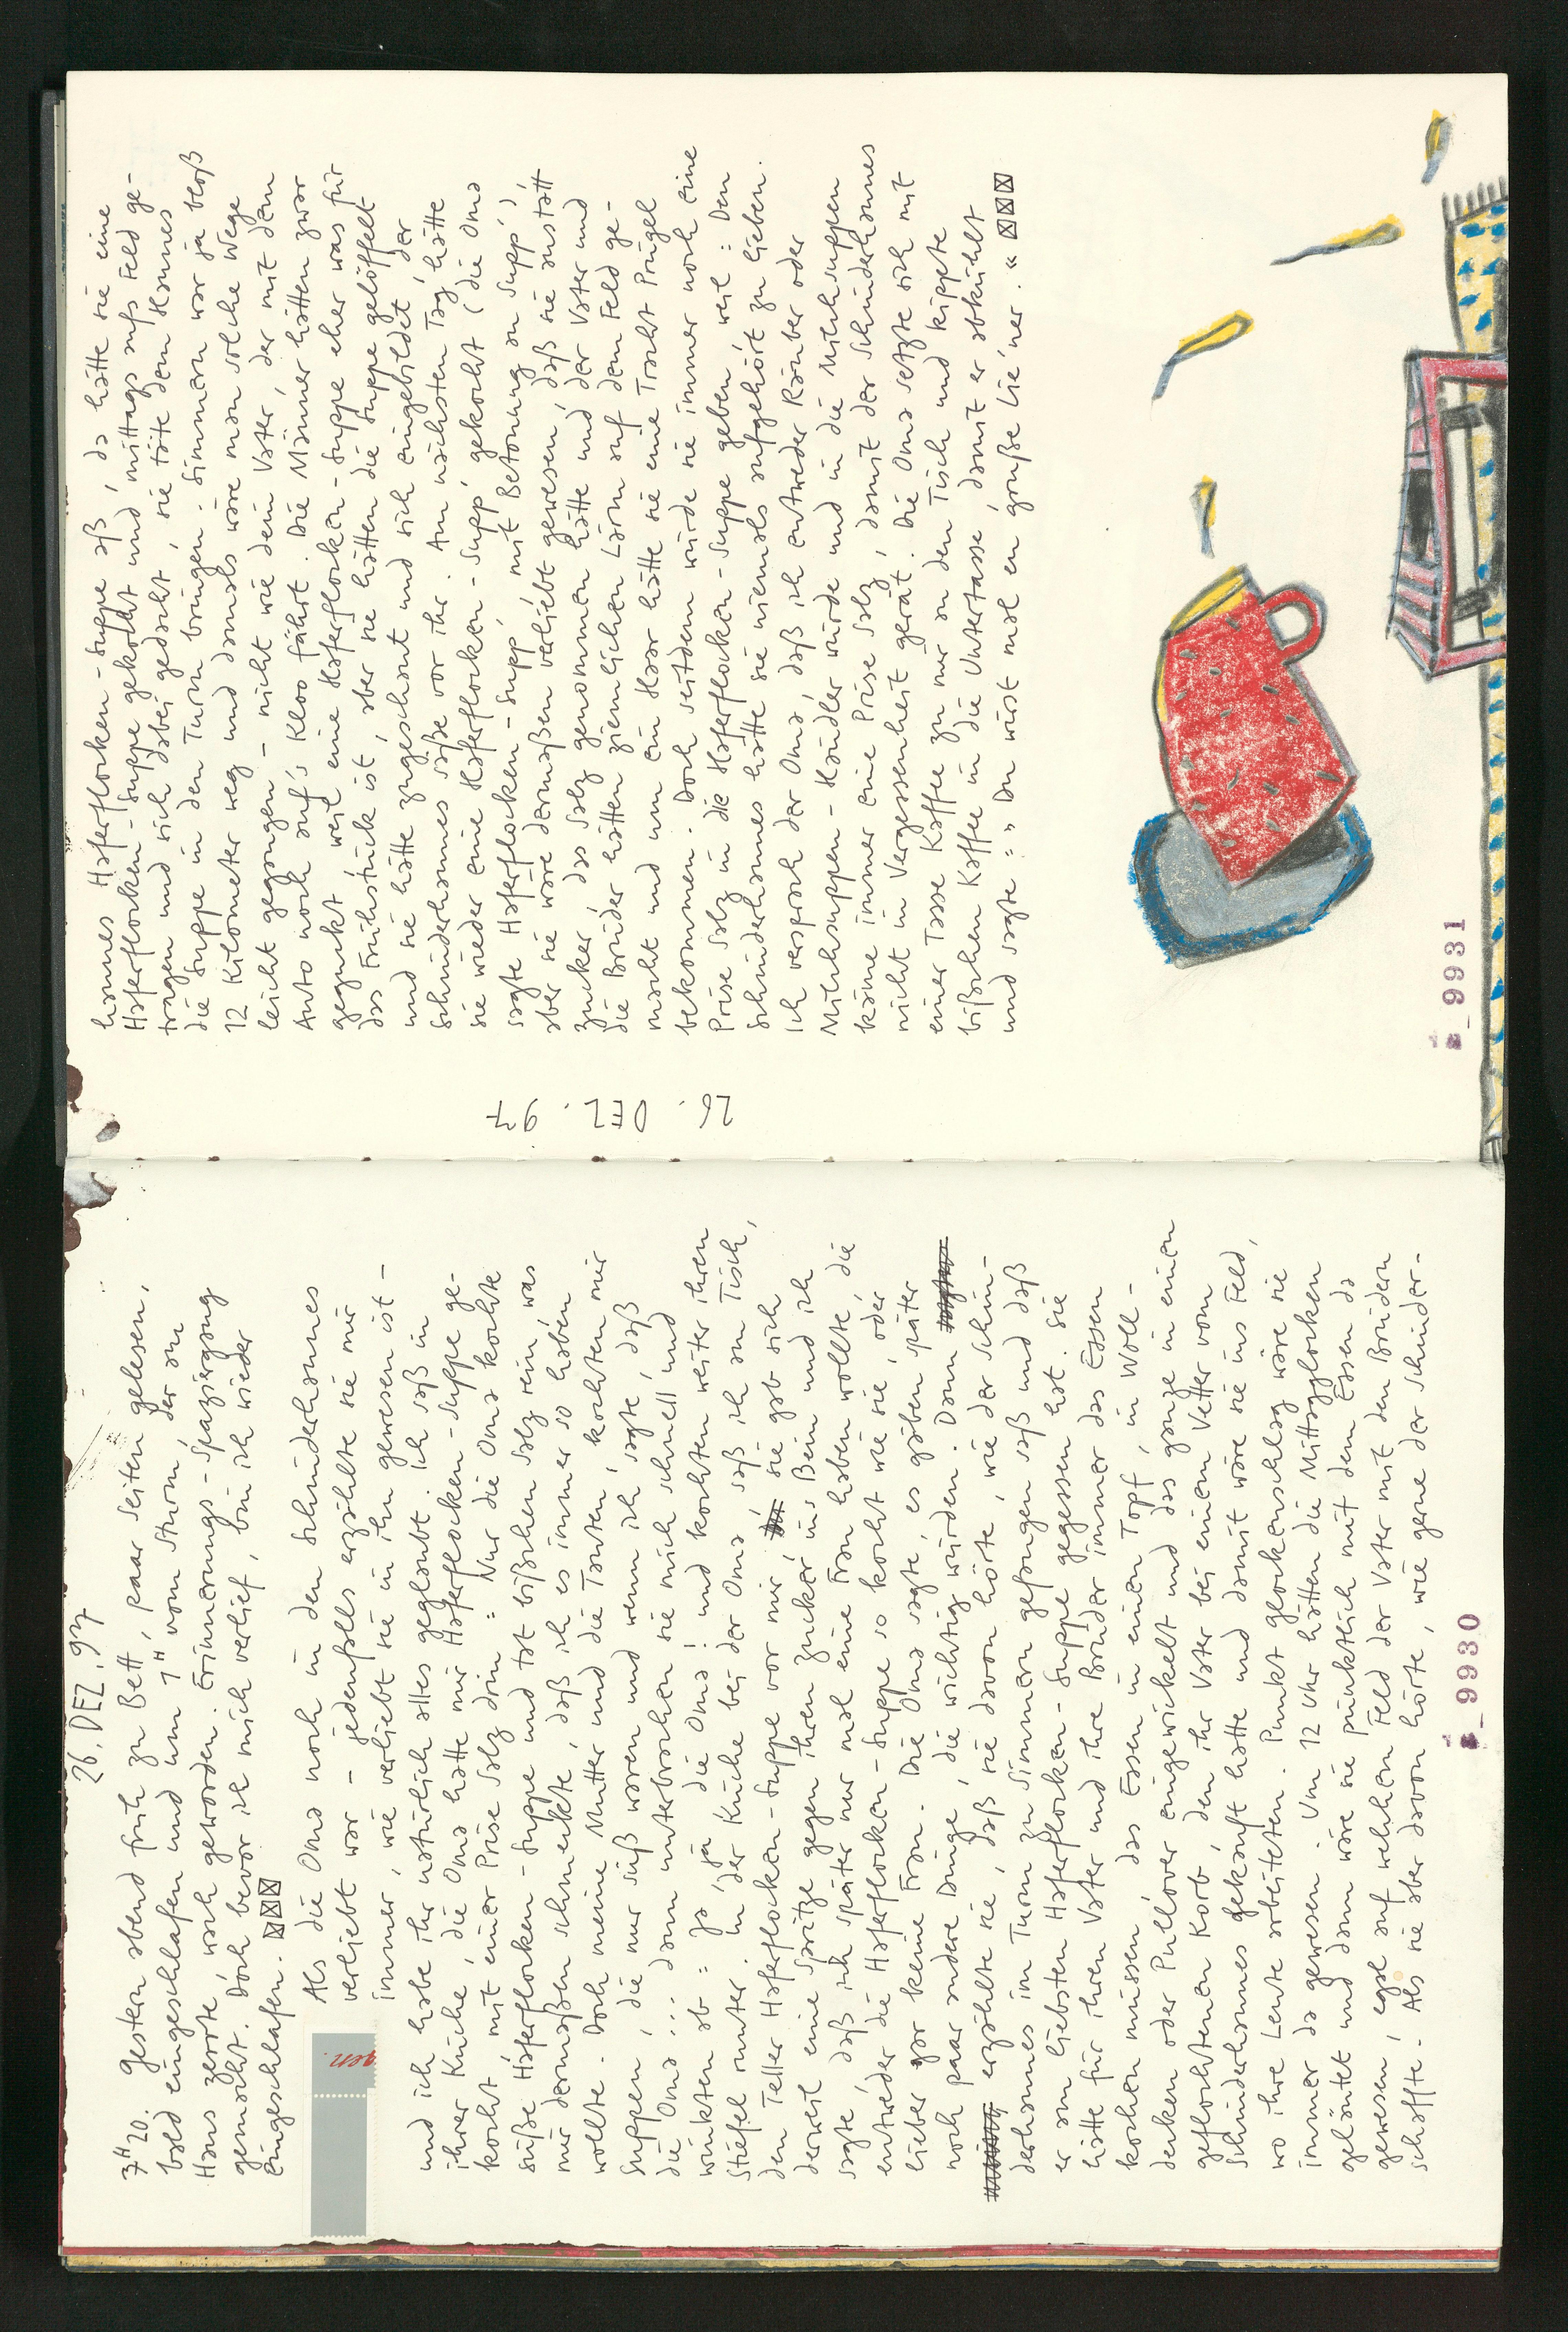 26. DEZ. 97
7ᴴ20. Gestern abend früh zu Bett, paar Seiten gelesen,
bald eingeschlafen und um 1ᴴ vom Sturm, der am
Haus zerrte, wach geworden. Erinnerungs-Spaziergang
gemacht. Doch bevor ich mich verlief, bin ich wieder
eingeschlafen. ☒☒☒
Als die Oma noch in den Schinderhannes
verliebt war – jedenfalls erzählte sie mir
immer, wie verliebt sie in ihn gewesen ist –
und ich habe ihr natürlich alles geglaubt. Ich saß in
ihrer Küche, die Oma hatte mir Haferflocken-Suppe ge-
kocht, mit einer Prise Salz drin: Nur die Oma kochte
süße Haferflocken-Suppe und tat bißchen Salz rein, was
mir dermaßen schmeckte, daß ich es immer so haben
wollte. Doch meine Mutter und die Tanten, kochten mir
Suppen, die nur süß waren und wenn ich sagte, daß
die Oma ... dann unterbrachen sie mich schnell und
winkten ab: Ja, ja, die Oma! und kochten weiter ihren
Stiefel runter. In der Küche bei der Oma, saß ich am Tisch,
den Teller Haferflocken-Suppe vor mir, sie gab sich
derweil eine Spritze gegen ihren Zucker ins Bein und ich
sagte, daß ich später nur mal eine Frau haben wollte, die
entweder die Haferflocken-Suppe so kocht wie sie, oder
lieber gar keine Frau. Die Oma sagte, es gäben später
noch paar andere Dinge, die wichtig würden. Dann
erzählte sie, daß sie davon hörte, wie der Schin-
derhannes im Turm zu Simmern gefangen saß und daß
er am liebsten Haferflocken-Suppe gegessen hat. Sie
hätte für ihren Vater und ihre Brüder immer das Essen
kochen müssen, das Essen in einen Topf, in Woll-
decken oder Pullover eingewickelt und das ganze in einen
geflochtenen Korb, den ihr Vater bei einem Vetter vom
Schinderhannes gekauft hatte und damit wäre sie ins Feld,
wo ihre Leute arbeiteten. Punkt Glockenschlag wäre sie
immer da gewesen. Um 12 Uhr hätten die Mittagglocken
geläutet und dann wäre sie pünktlich mit dem Essen da
gewesen, egal auf welchen Feld der Vater mit den Brüdern
schaffte. Als sie aber davon hörte, wie gerne der Schinder-
gen.
z_9930
hannes Haferflocken-Suppe aß, da hätte sie eine
Haferflocken-Suppe gekocht und mittags aufs Feld ge-
tragen und sich dabei gedacht, sie täte dem Hannes
die Suppe in den Turm bringen. Simmern war ja bloß
12 Kilometer weg und damals wäre man solche Wege
leicht gegangen – nicht wie dein Vater, der mit dem
Auto noch auf's Kloo fährt. Die Männer hätten zwar
geguckt, weil eine Haferflocken-Suppe eher was für
das Frühstück ist, aber sie hätten die Suppe gelöffelt
und sie hätte zugeschaut und sich eingebildet, der
Schinderhannes säße vor ihr. Am nächsten Tag, hätte
sie wieder eine Haferflocken-Supp' gekocht (die Oma
sagte Haferflocken-Supp', mit Betonung an Supp')
aber sie wäre dermaßen verliebt gewesen, daß sie anstatt
Zucker, das Salz genommen hätte und der Vater und
die Brüder hätten ziemlichen Lärm auf dem Feld ge-
macht und um ein Haar hätte sie eine Tracht Prügel
bekommen. Doch seitdem würde sie immer noch eine
Prise Salz in die Haferflocken-Suppe geben, weil: Den
Schinderhannes hätte sie niemals aufgehört zu lieben.
Ich versprach der Oma, daß ich entweder Räuber oder
Milchsuppen-Händler würde und in die Milchsuppen
käme immer eine Prise Salz, damit der Schinderhannes
nicht in Vergessenheit gerät. Die Oma setzte sich mit
einer Tasse Kaffee zu mir an den Tisch und kippte
bißchen Kaffee in die Untertasse, damit er abkühlt
und sagte: „Du wirst mal en gruße Lie'ner." ☒☒☒
26. DEZ. 97
z_9931